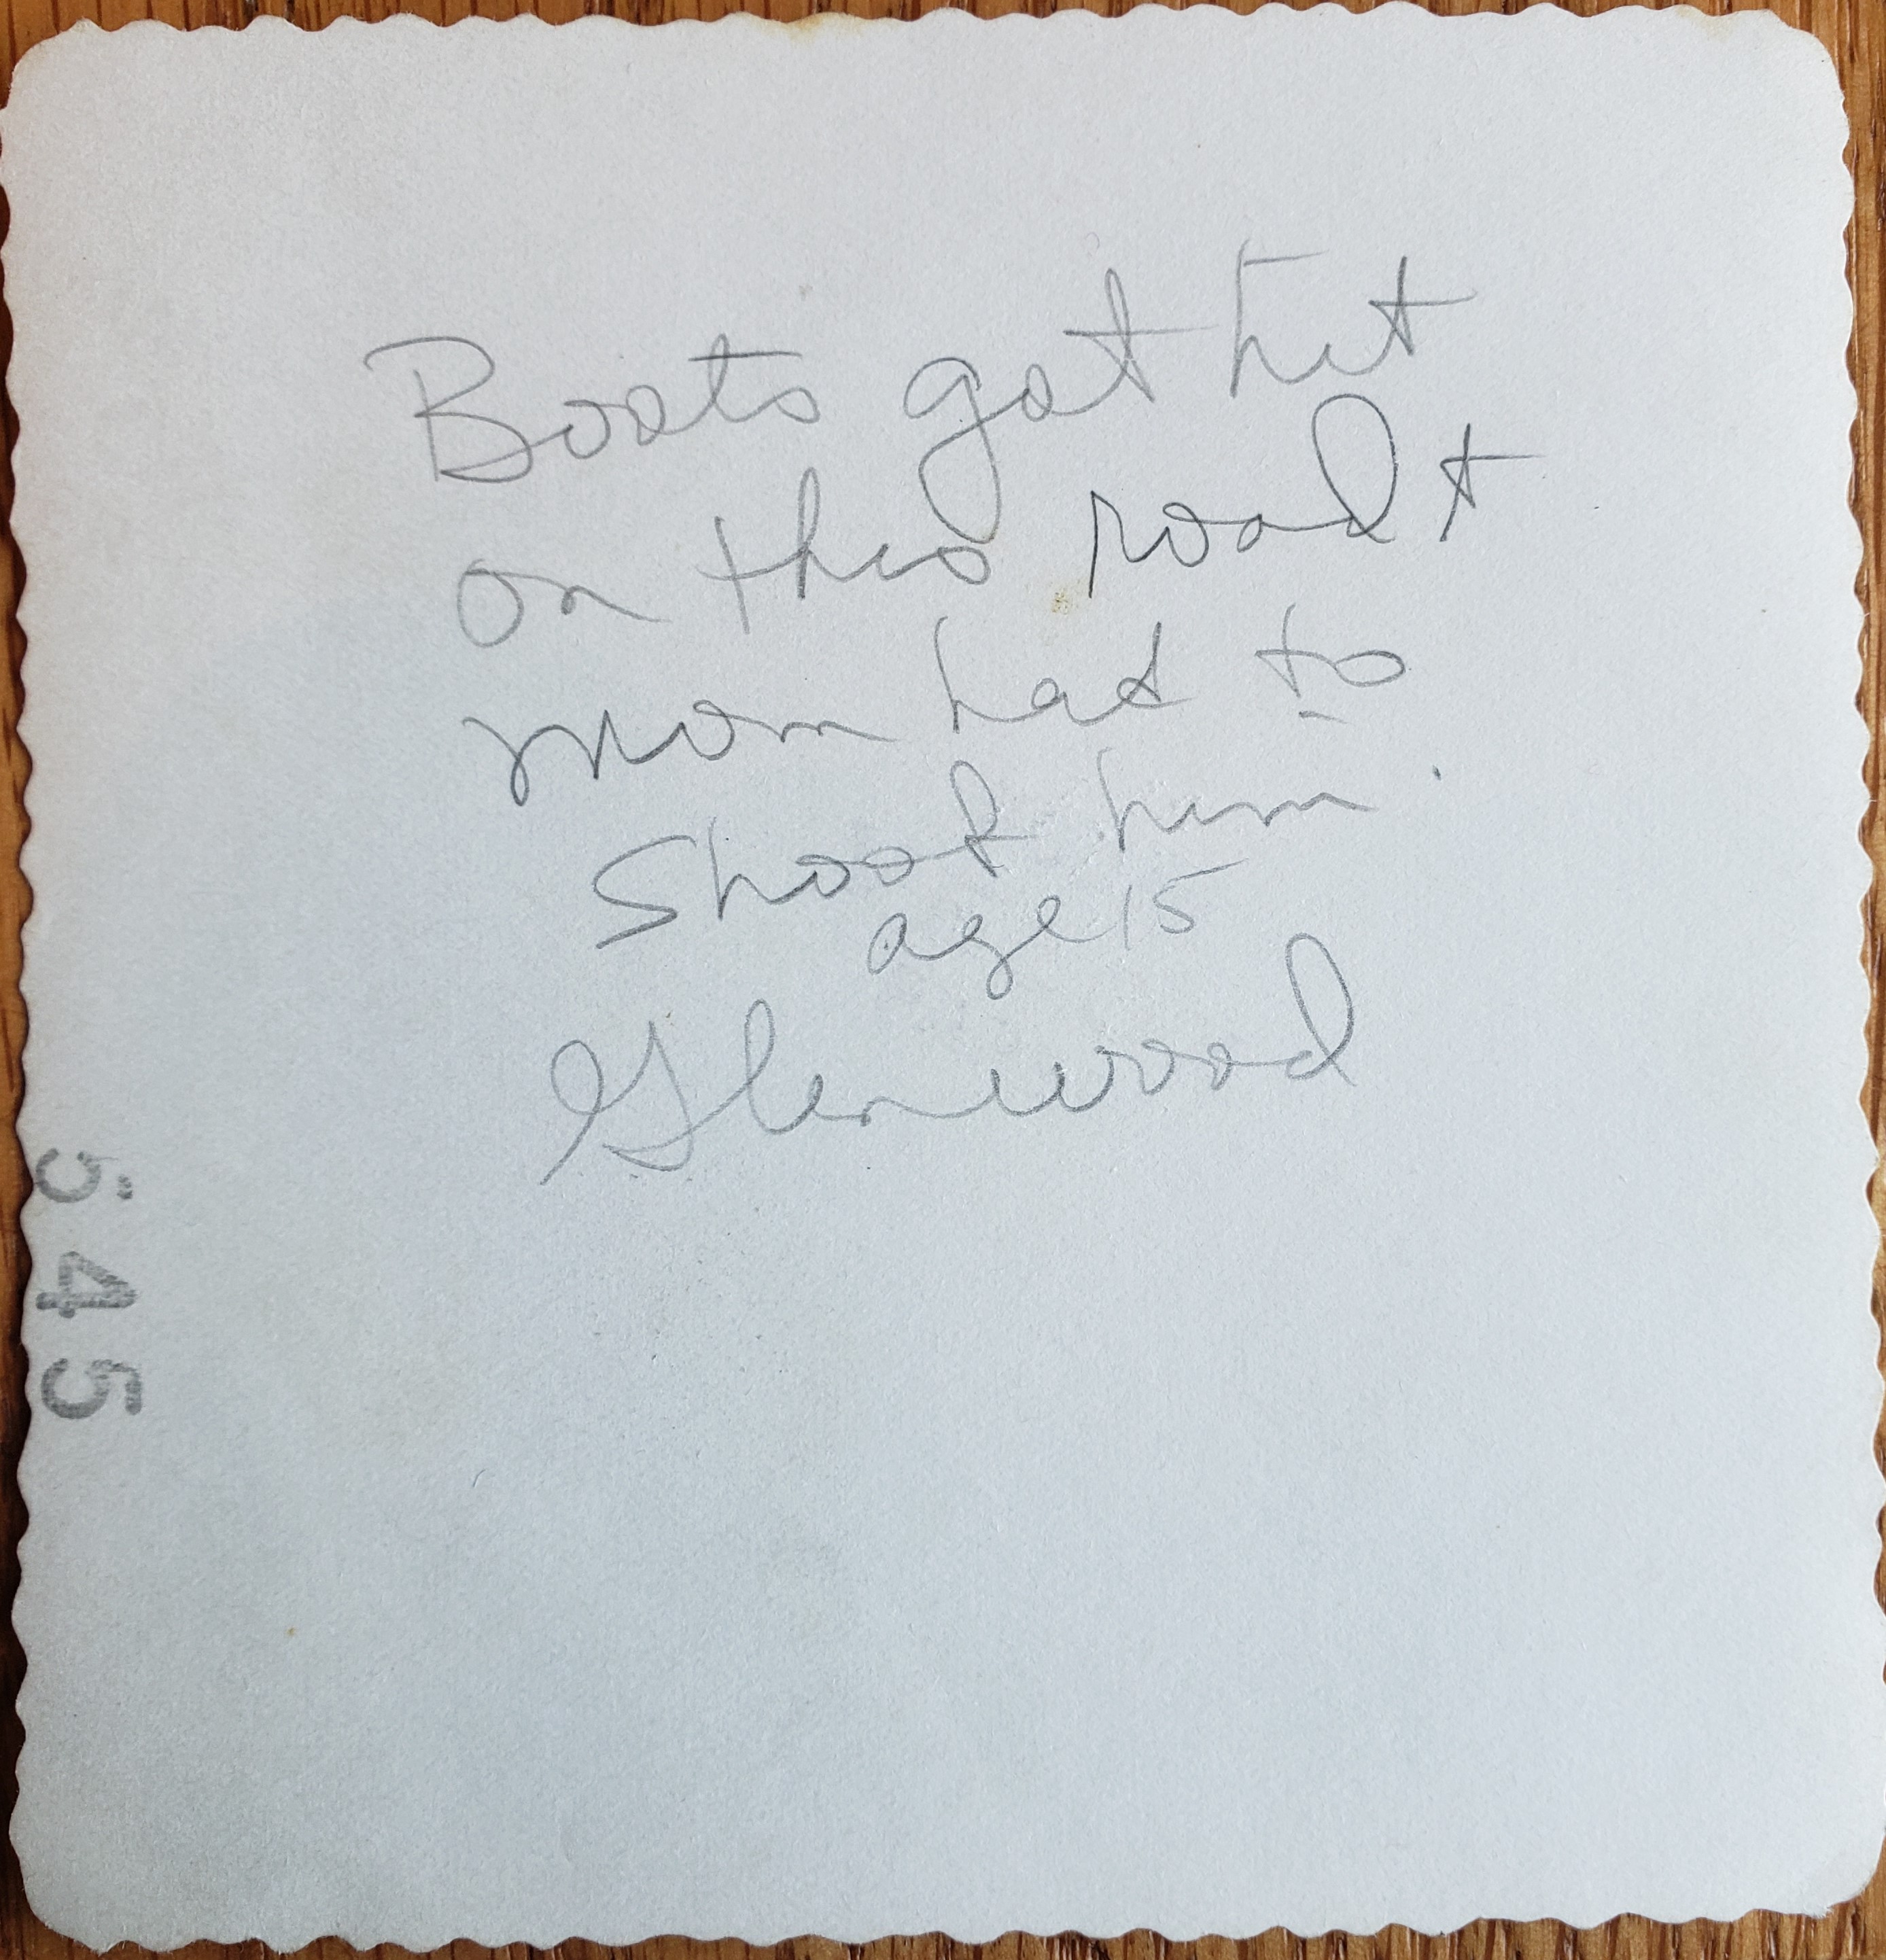 Boots got hit
on this road +
mom had to
shoot him.
age 15
Glenwood
545